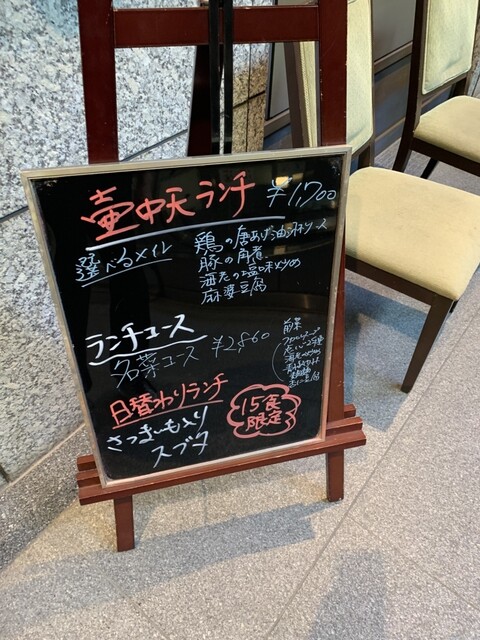 壷中天ランチ ¥1,700
選べるメイン
鶏の唐あげ油淋ソース
豚の角煮
海老の塩味炒め
麻婆豆腐
ランチコース
名菜コース ¥2,860
前菜
日替わりランチ
さつまいも入り
スブタ
15食
限定